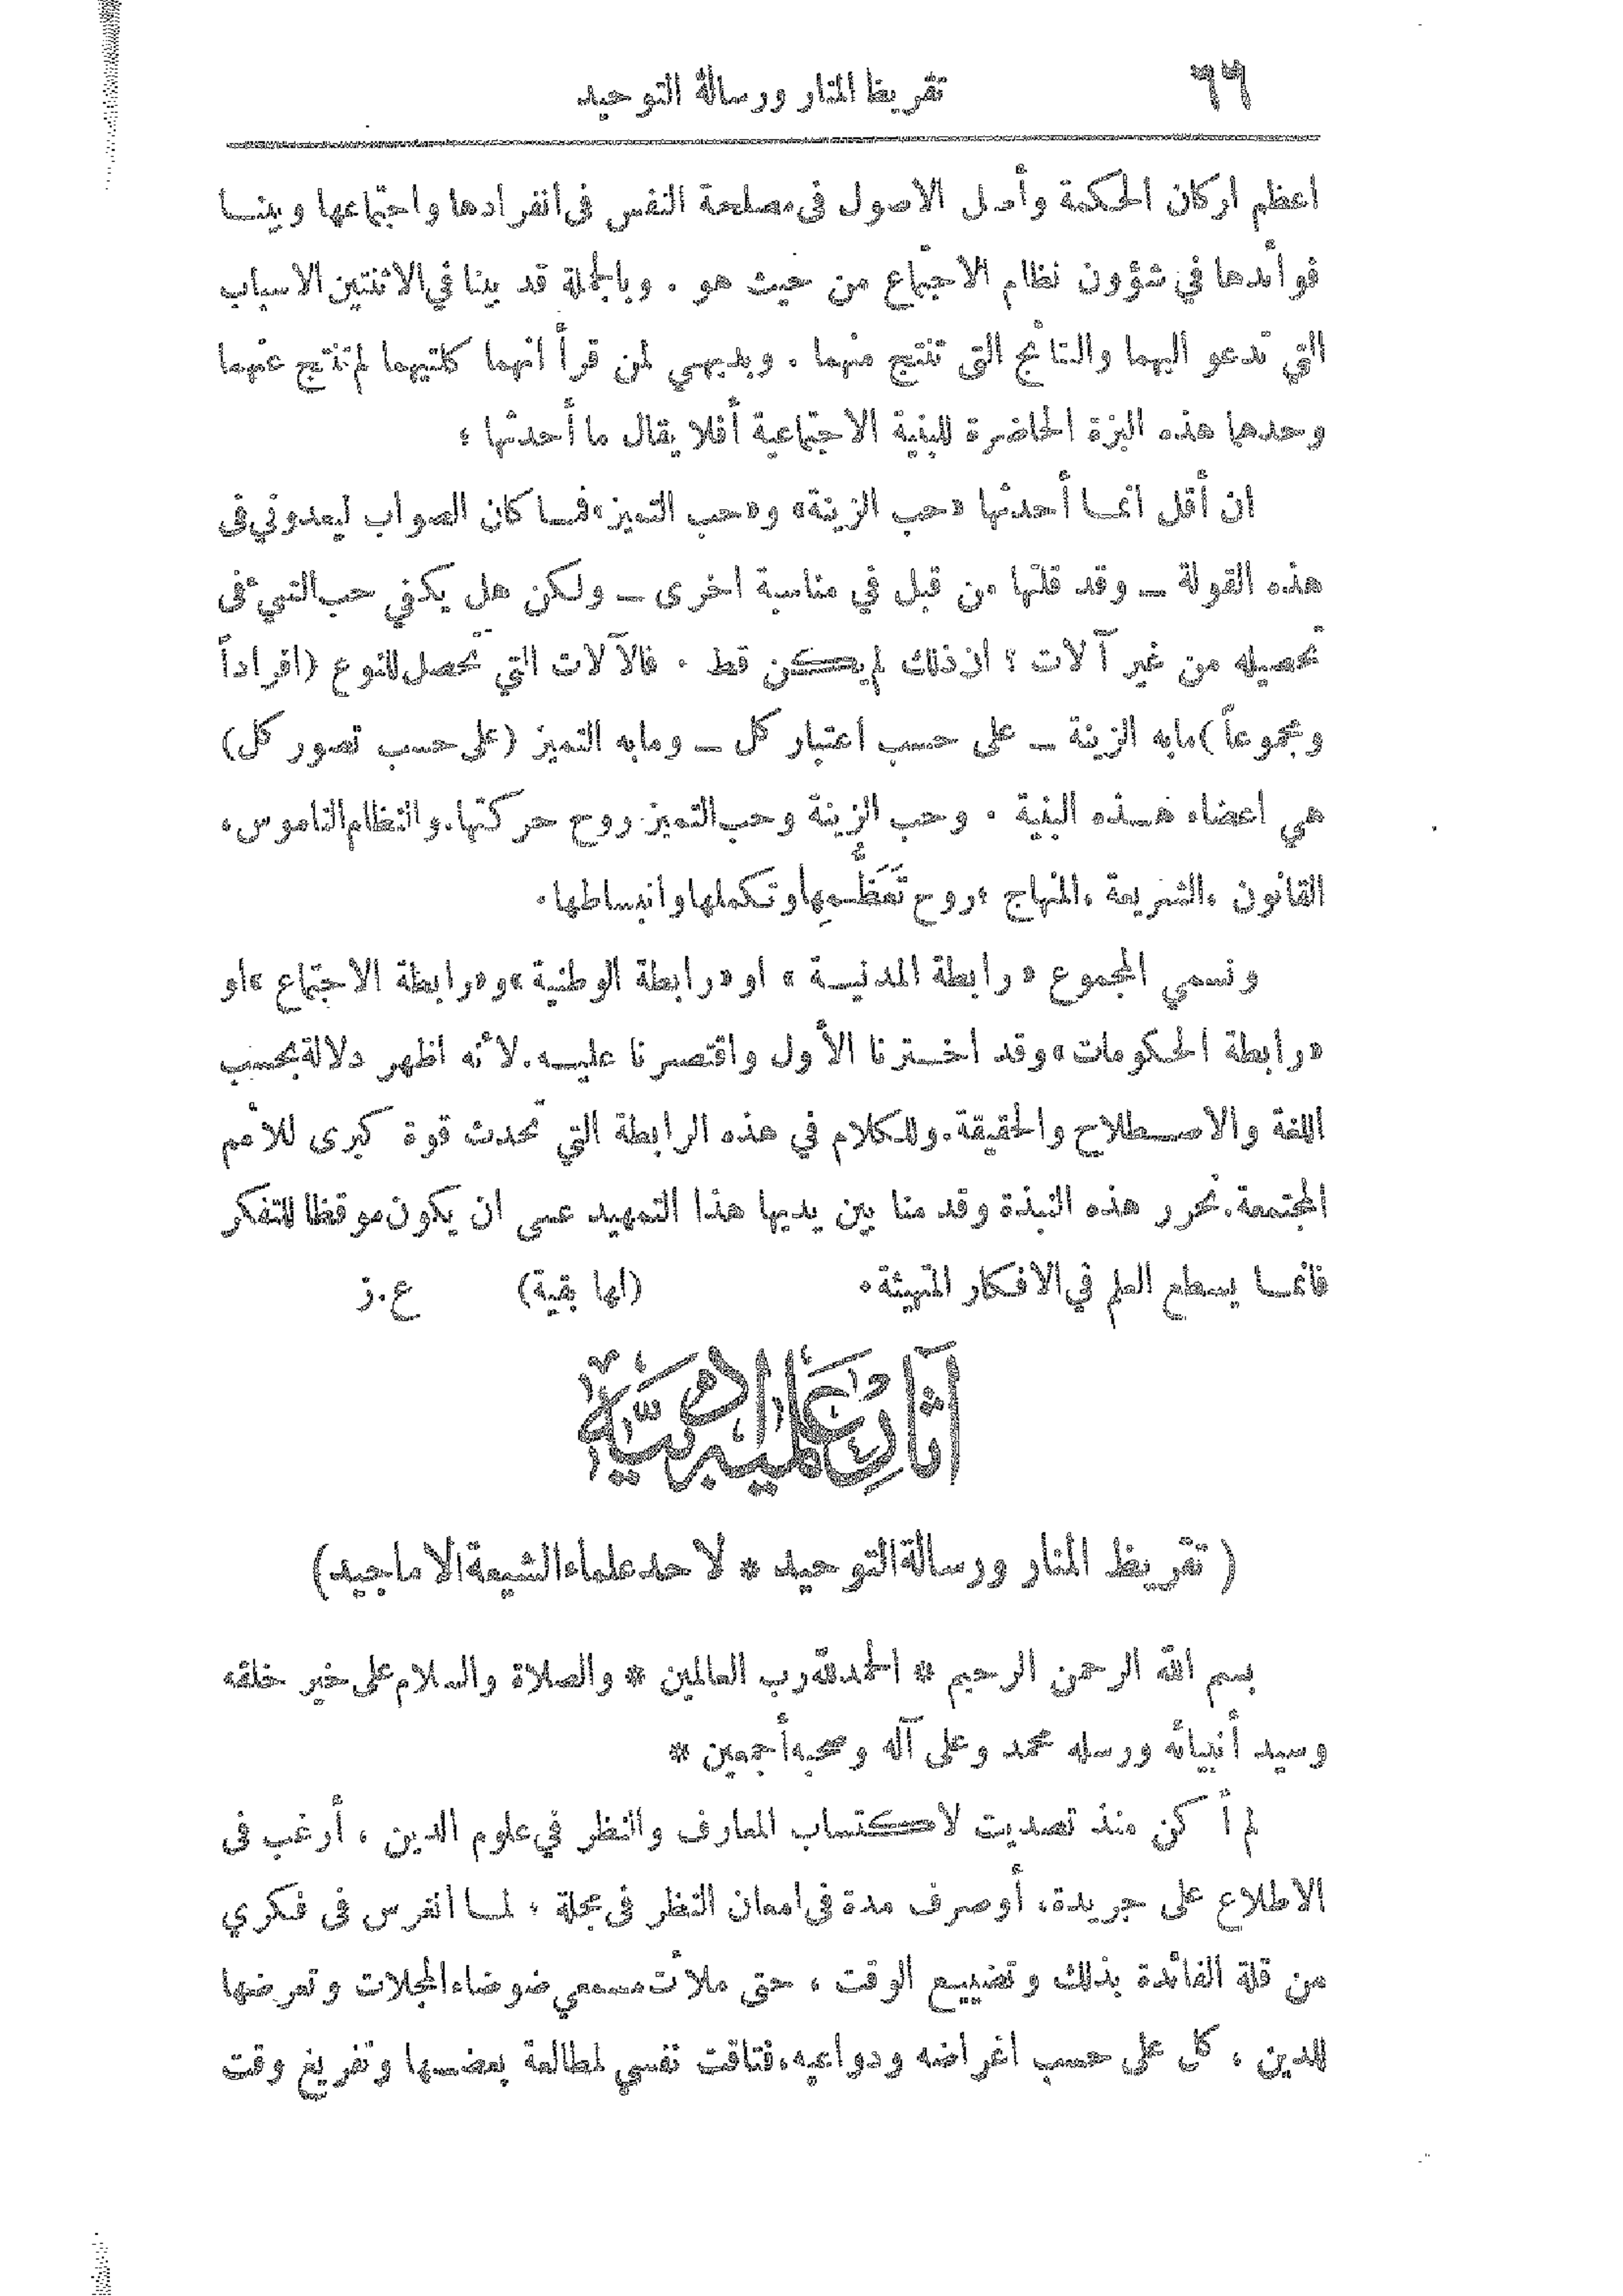 ٦٦ تقريظ المنار ورسالة التوحيد
اعظم اركان الحكمة وأصل الاصول فى مصلحة النفس فى انفرادها واجتماعها وبينــا
فوائدها في شؤون نظام الاجتماع من حيث هو . وبالجملة قد بينا في الاثنتين الاسباب
التي تدعو اليهما والنتائج التى تنتج منهما . وبديهي لمن قرأ انهما كلتيهما لم تنتج عنهما
وحدهما هذه البزة الحاضرة للبنية الاجتماعية أفلا يقال ما أحدثها ؟
ان أقل انمـا أحدثها «حب الزينة» و«حب التميز» فـما كان الصواب ليعدوني فى
هذه القولة ــ وقد قلتها من قبل في مناسبة اخرى ــ ولكن هل يكفي حب الشيء فى
تحصيله من غير آلات ؟ ان ذلك لم يكـن قط . فالآلات التي تُحصل للنوع (افراداً
ومجموعاً) مابه الزينة ــ على حسب اعتبار كل ــ ومابه التميز (على حسب تصور كل)
هي اعضاء هـذه البنية . وحب الزينة وحب التميز روح حركتها. والنظام الناموس،
القانون ،الشريعة ،المنهاج ،روح تَعَظُّـمِها وتكملها وانبساطها.
ونسمي المجموع « رابطة المدنيـة » او «رابطة الوطنية» و«رابطة الاجتماع» او
«رابطة الحكومات» وقد اخـترنا الأول واقتصرنا عليـه. لأنه اظهر دلالة بحسب
اللغة والاصـطلاح والحقيقة. وللكلام في هذه الرابطة التي تُحدث قوة كبرى للأمم
المجتمعة. نحرر هذه النبذة وقدمنا بين يديها هذا التمهيد عسى ان يكون موقظا للتفكر
فانمـا يسطع العلم في الافكار المتهيئة. (لها بقية) ع.ز
(تقريظ المنار ورسالة التوحيد * لاحد علماء الشيعة الاماجيد)
بسم الله الرحمن الرحيم * الحمد لله رب العالمين * والصلاة والسلام على خير خلقه
وسيد أنبيائه ورسله محمد وعلى آله وصحبه أجمعين *
لم أكن منذ تصديت لاكتساب المعارف والنظر في علوم الدين ، أرغب فى
الاطلاع على جريدة، أو صرف مدة فى امعان النظر فى مجلة ، لمـا انغرس فى فكري
من قلة الفائدة بذلك وتضييع الوقت ، حتى ملأت مسمعي ضوضاء المجلات وتعرضها
للدين ، كل على حسب اغراضه ودواعيه، فتاقت نفسي لمطالعة بعضـها وتفريغ وقت